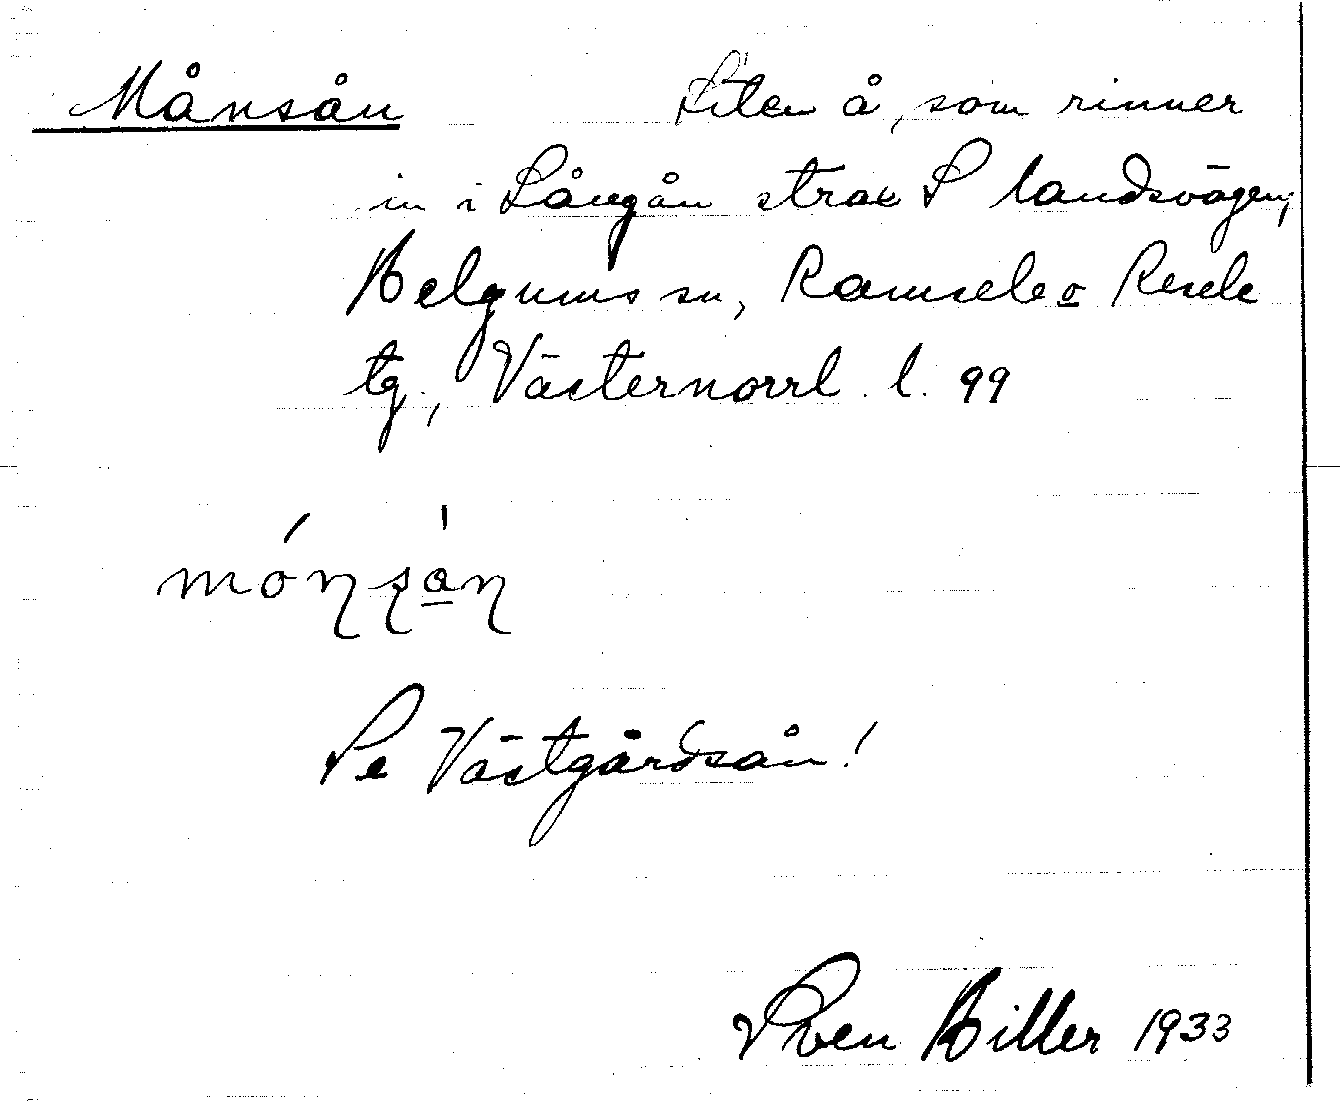 Månsån Liten å, som rinner
in i Långån strax S landsvägen,
Helgums sn, Ramsele o Resele
tg., Västernorrl. l. 99
mónsån
Se Västgårdsån!
Sven Hiller 1933